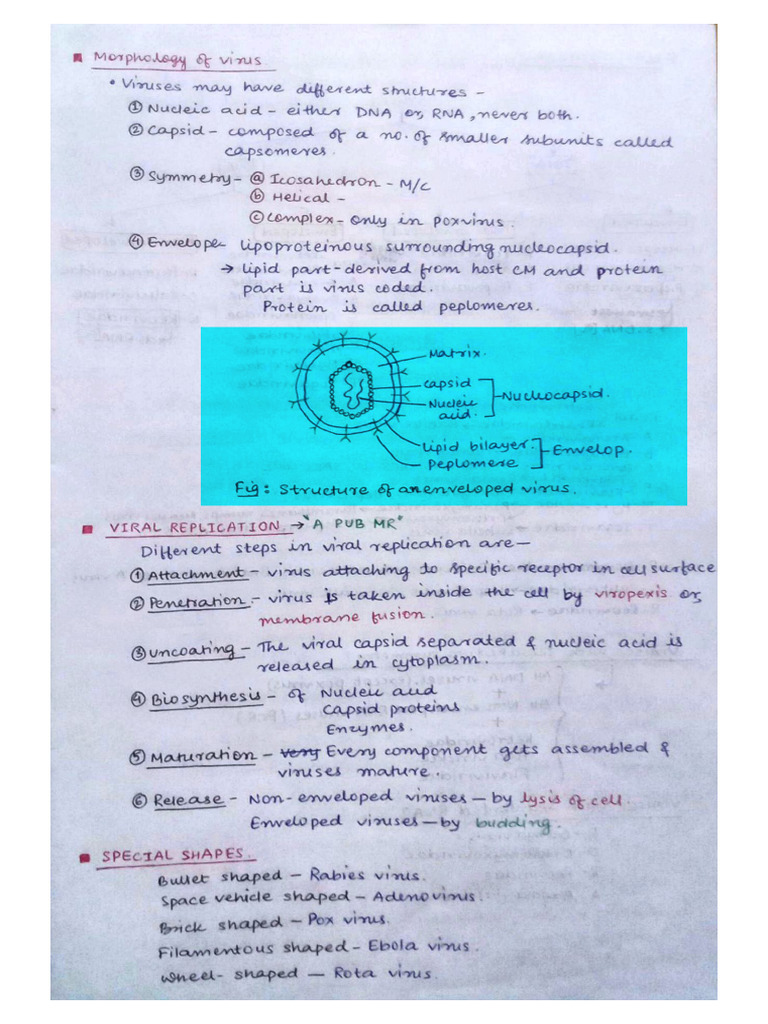 ■ Morphology of virus
• Viruses may have different structures -
① Nucleic acid - either DNA or, RNA, never both.
② Capsid - composed of a no. of smaller subunits called
capsomeres.
③ Symmetry - ⓐ Icosahedron - M/C
ⓑ Helical -
ⓒ complex - only in poxvirus.
④ Envelope - lipoproteinous surrounding nucleocapsid.
→ lipid part - derived from host CM and protein
part is virus coded.
Protein is called peplomeres.
Matrix.
capsid
Nucleocapsid.
Nucleic
acid.
lipid bilayer.
Envelop.
peplomere
Fig: Structure of an enveloped virus.
■ VIRAL REPLICATION. → "A PUB MR"
Different steps in viral replication are—
① Attachment - virus attaching to specific receptor in cell surface
② Penetration. - virus is taken inside the cell by viropexis or,
membrane fusion.
③ Uncoating - The viral capsid separated & nucleic acid is
released in cytoplasm.
④ Biosynthesis - of Nucleic acid
Capsid proteins
Enzymes.
⑤ Maturation - Very Every component gets assembled &
viruses mature.
⑥ Release - Non-enveloped viruses — by lysis of cell.
Enveloped viruses — by budding.
■ SPECIAL SHAPES.
Bullet shaped - Rabies virus.
Space vehicle shaped - Adenovirus
Brick shaped - Pox virus.
Filamentous shaped - Ebola virus.
Wheel- shaped — Rota virus.